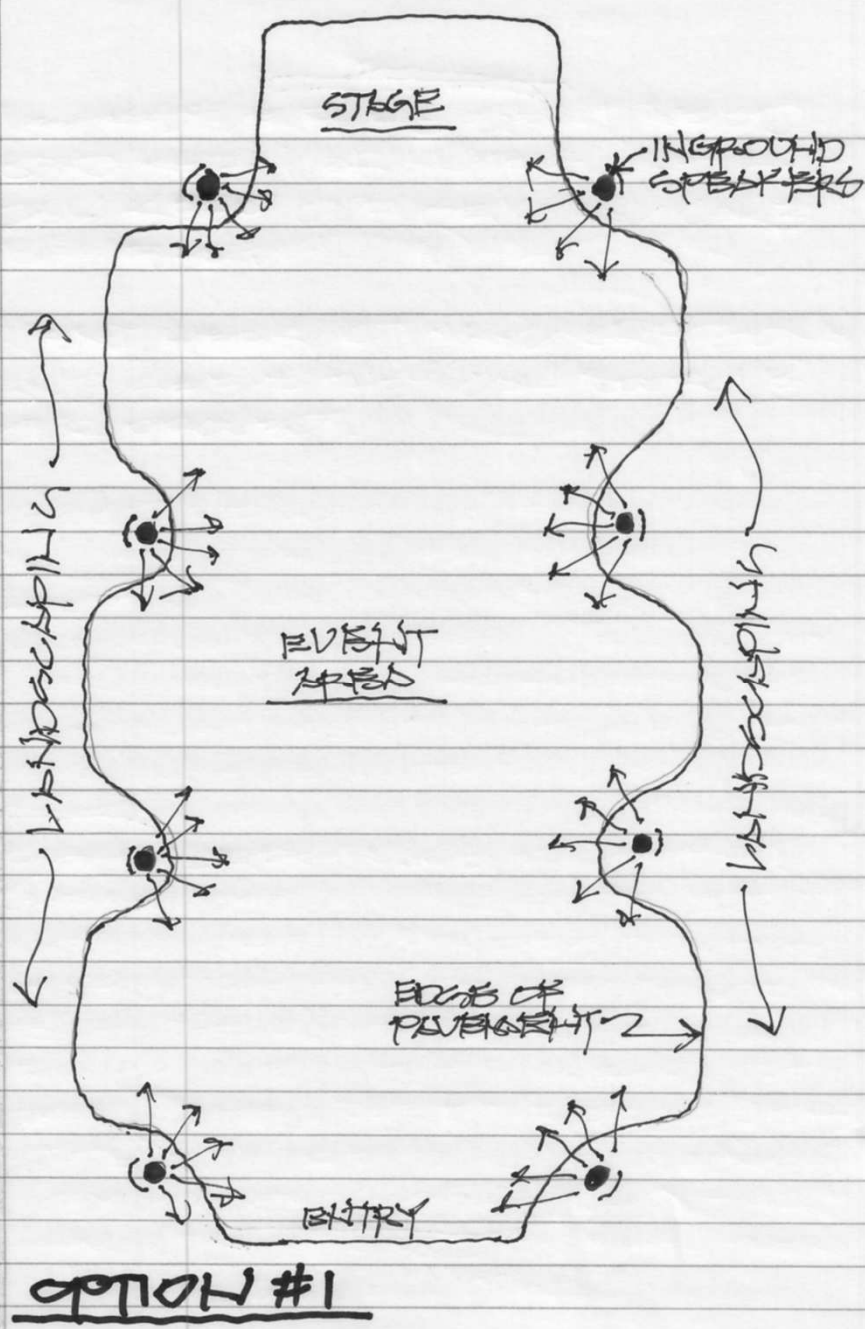 STAGE
INGROUND
SPEAKERS
LANDSCAPING
EVENT
AREA
LANDSCAPING
EDGE OF
PAVEMENT
ENTRY
OPTION #1